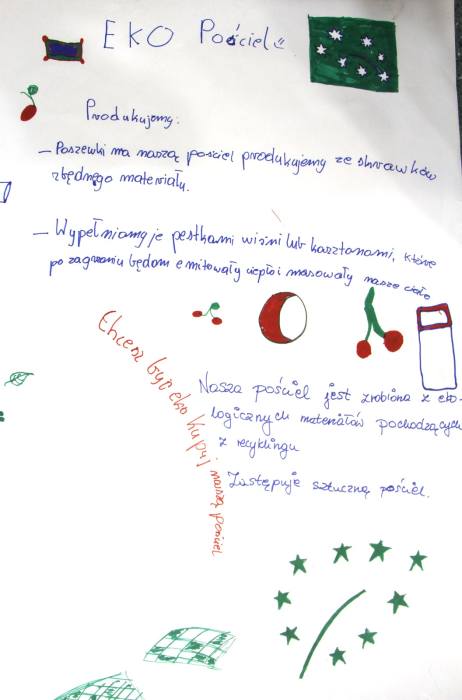 EKO Pościel
Produkujemy:
– Poszewki na naszą pościel produkujemy ze skrawków
zbędnego materiału.
– Wypełniamy je pestkami wiśni lub kasztanami, które
po zagrzaniu będom emitowały ciepło i masowały nasze ciało
Chcesz być eko kupuj naszą pościel
Nasza pościel jest zrobiona z eko-
logicznych materiałów pochodzących
z recyklingu
Zastępuje sztuczną pościel.